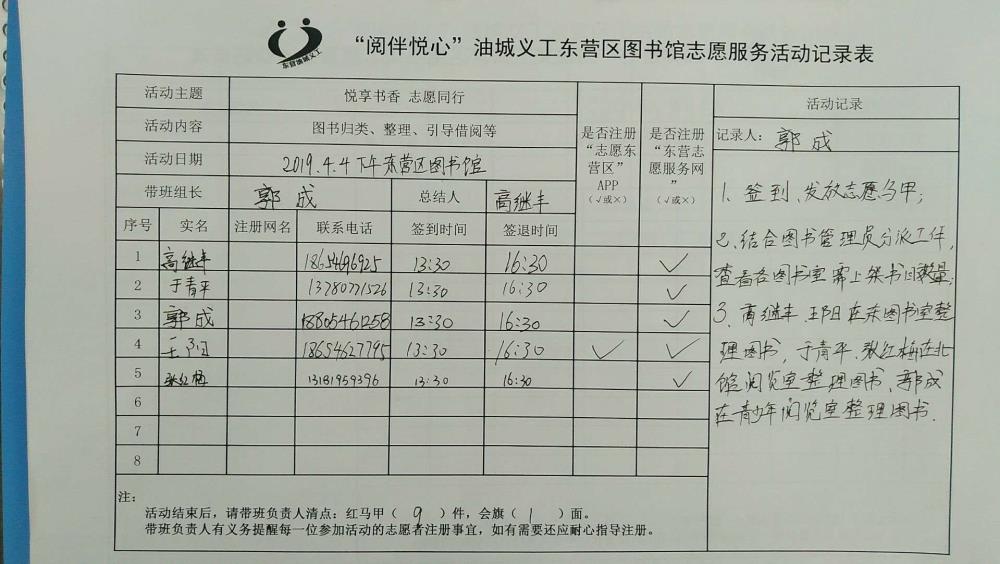 东营油城义工
“阅伴悦心”油城义工东营区图书馆志愿服务活动记录表
活动主题 悦享书香 志愿同行
活动内容 图书归类、整理、引导借阅等
活动日期 2019.4.4下午东营区图书馆
带班组长 郭成 总结人 高继丰
是否注册“志愿东营区”APP（√或×）
是否注册“东营志愿服务网”（√或×）
序号 实名 注册网名 联系电话 签到时间 签退时间
1 高继丰 13:30 16:30 √
2 于青平 13780771526 13:30 16:30 √
3 郭成 18805461258 13:30 16:30 √
4 王阳 18654627795 13:30 16:30 √ √
5 张红梅 13181959396 13:30 16:30 √
6
7
8
活动记录
记录人：郭成
1、签到、发放志愿马甲；
2、结合图书管理员分派工作，
查看各图书室需上架书的数量；
3、高继丰、王阳在东图书室整
理图书，于青平、张红梅在北
馆阅览室整理图书、郭成
在青少年阅览室整理图书.
注：
活动结束后，请带班负责人清点：红马甲（ 9 ）件，会旗（ 1 ）面。
带班负责人有义务提醒每一位参加活动的志愿者注册事宜，如有需要还应耐心指导注册。